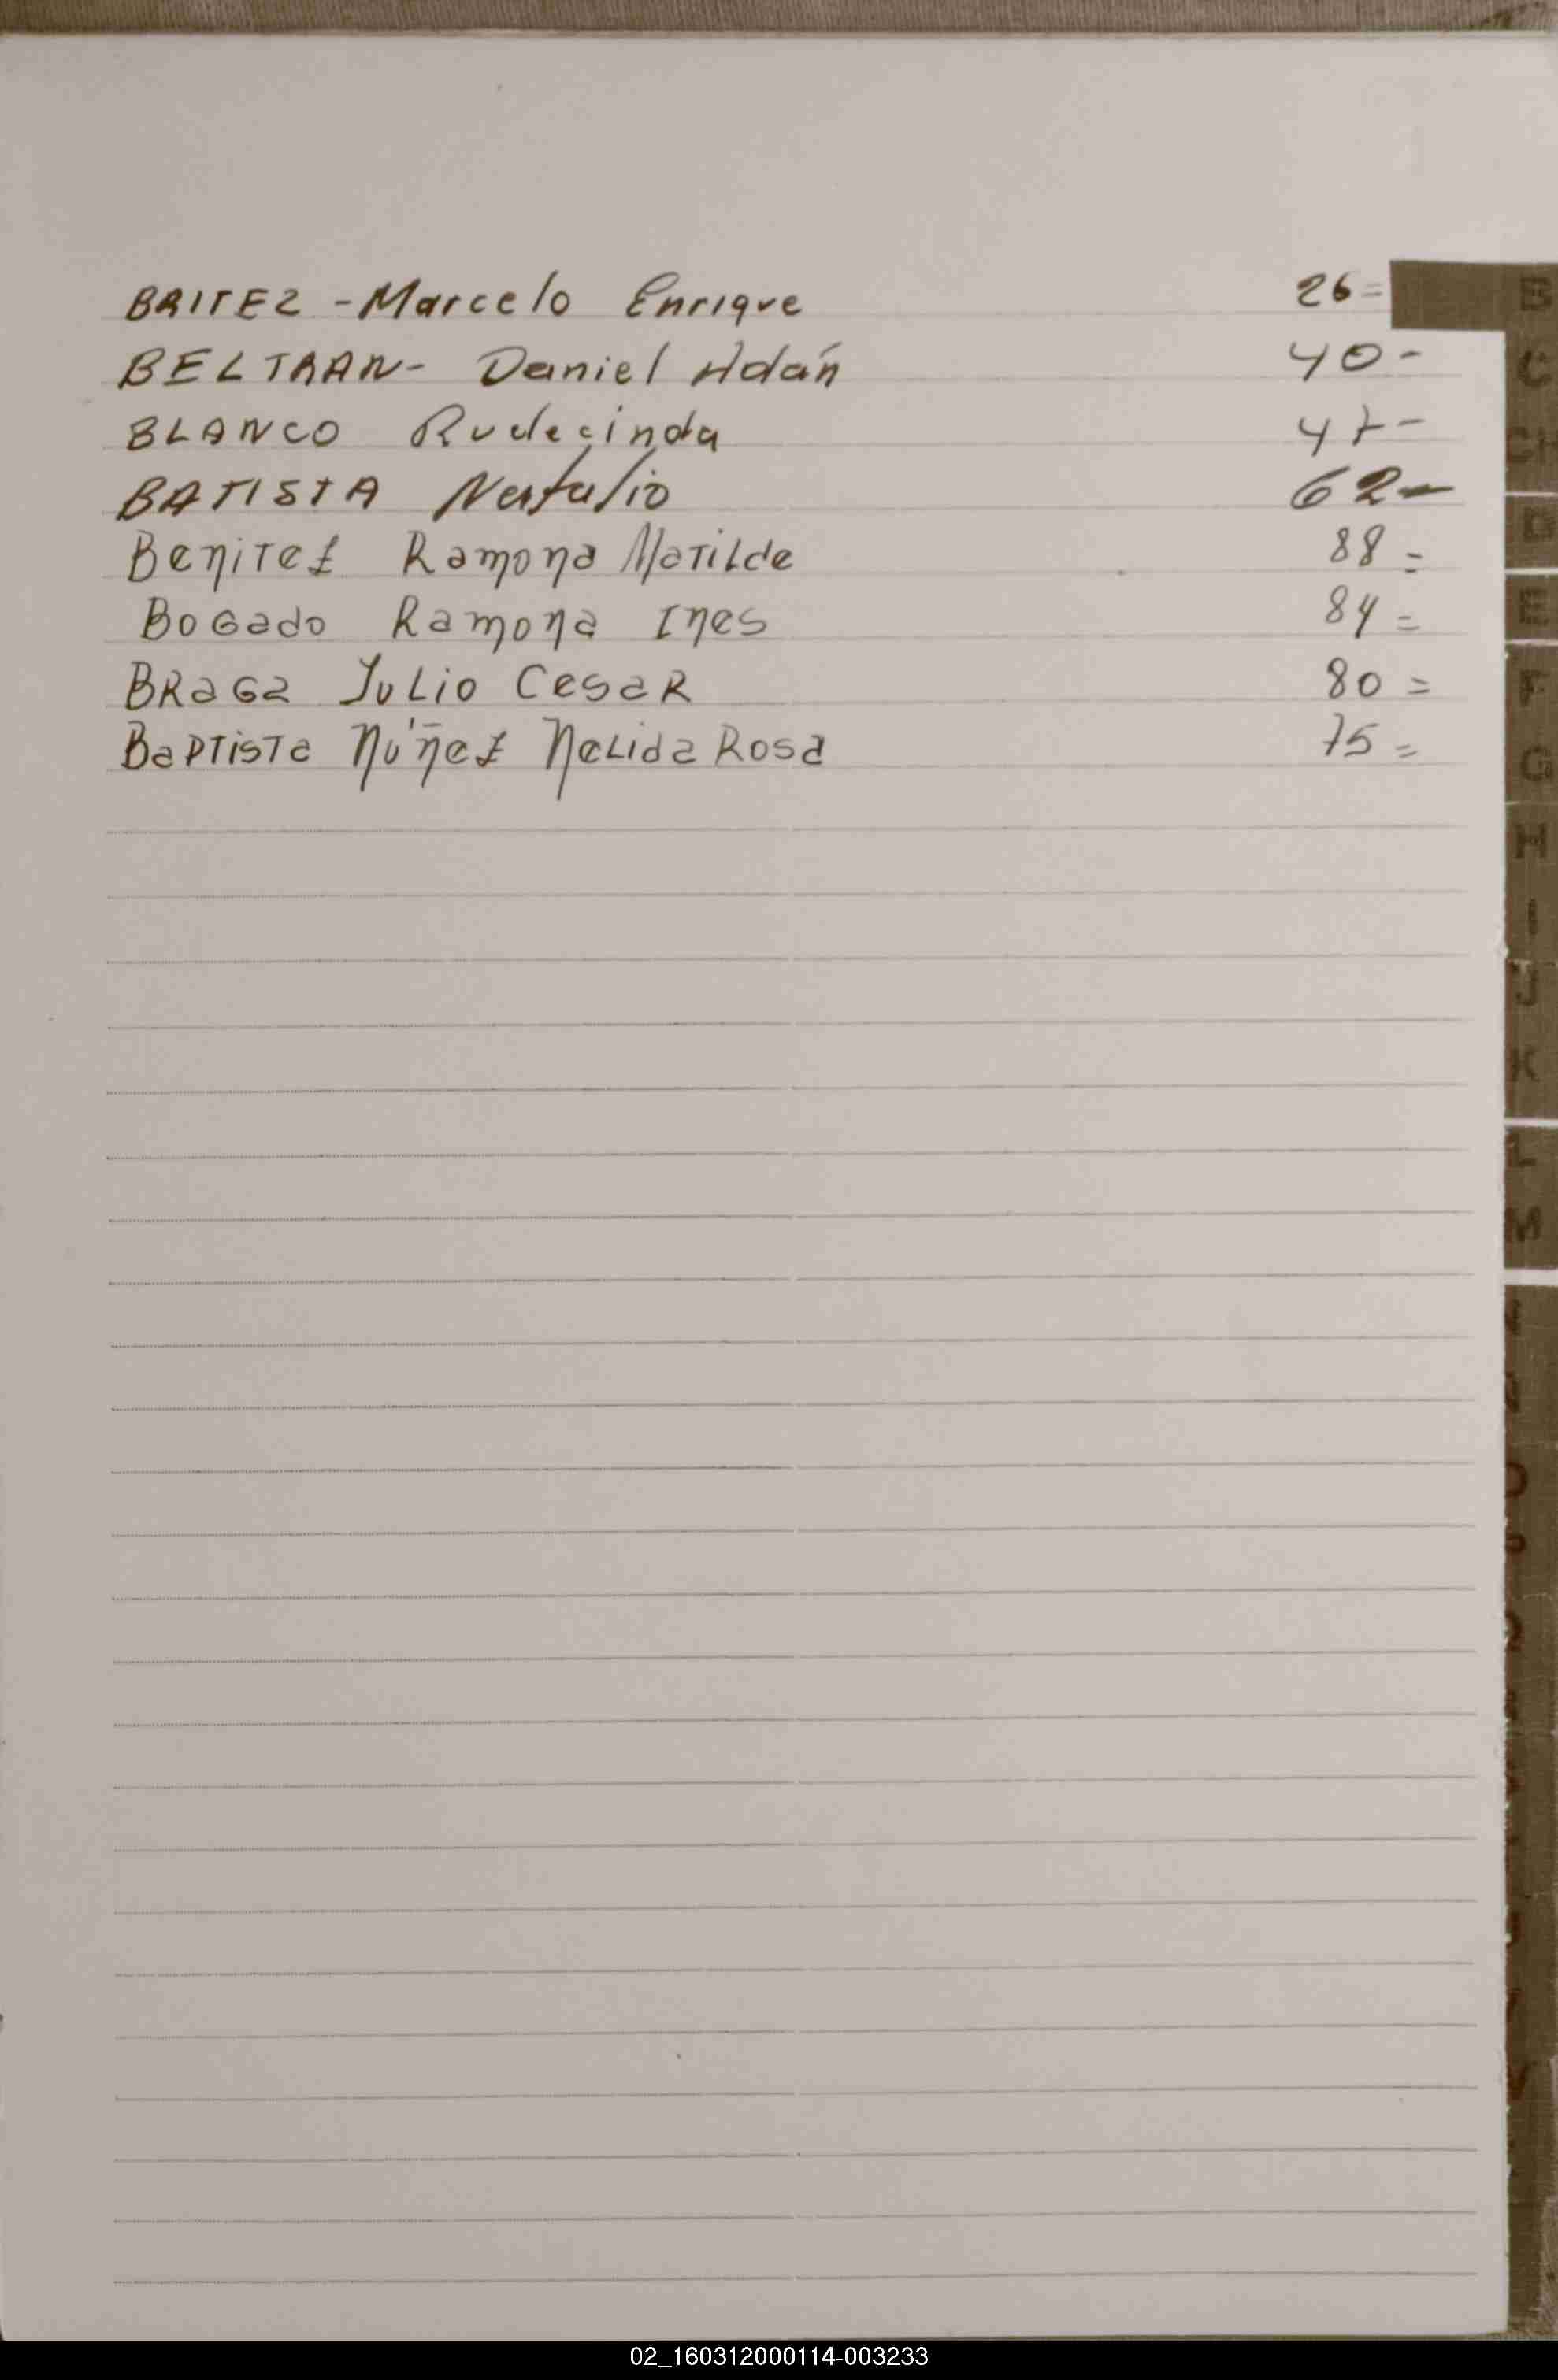 BRITEZ - Marcelo Enrique 26=
BELTRAN - Daniel Adán 40-
BLANCO Rudecinda 47-
BATISTA 62-
Beniтez Ramona Matilde 88=
Bogado Ramona Ines 84=
BRaga Julio CesaR 80=
Baptista Núñez Nelida Rosa 75=
B
C
CH
D
E
F
G
H
I
J
K
L
M
O
V
02_160312000114-003233